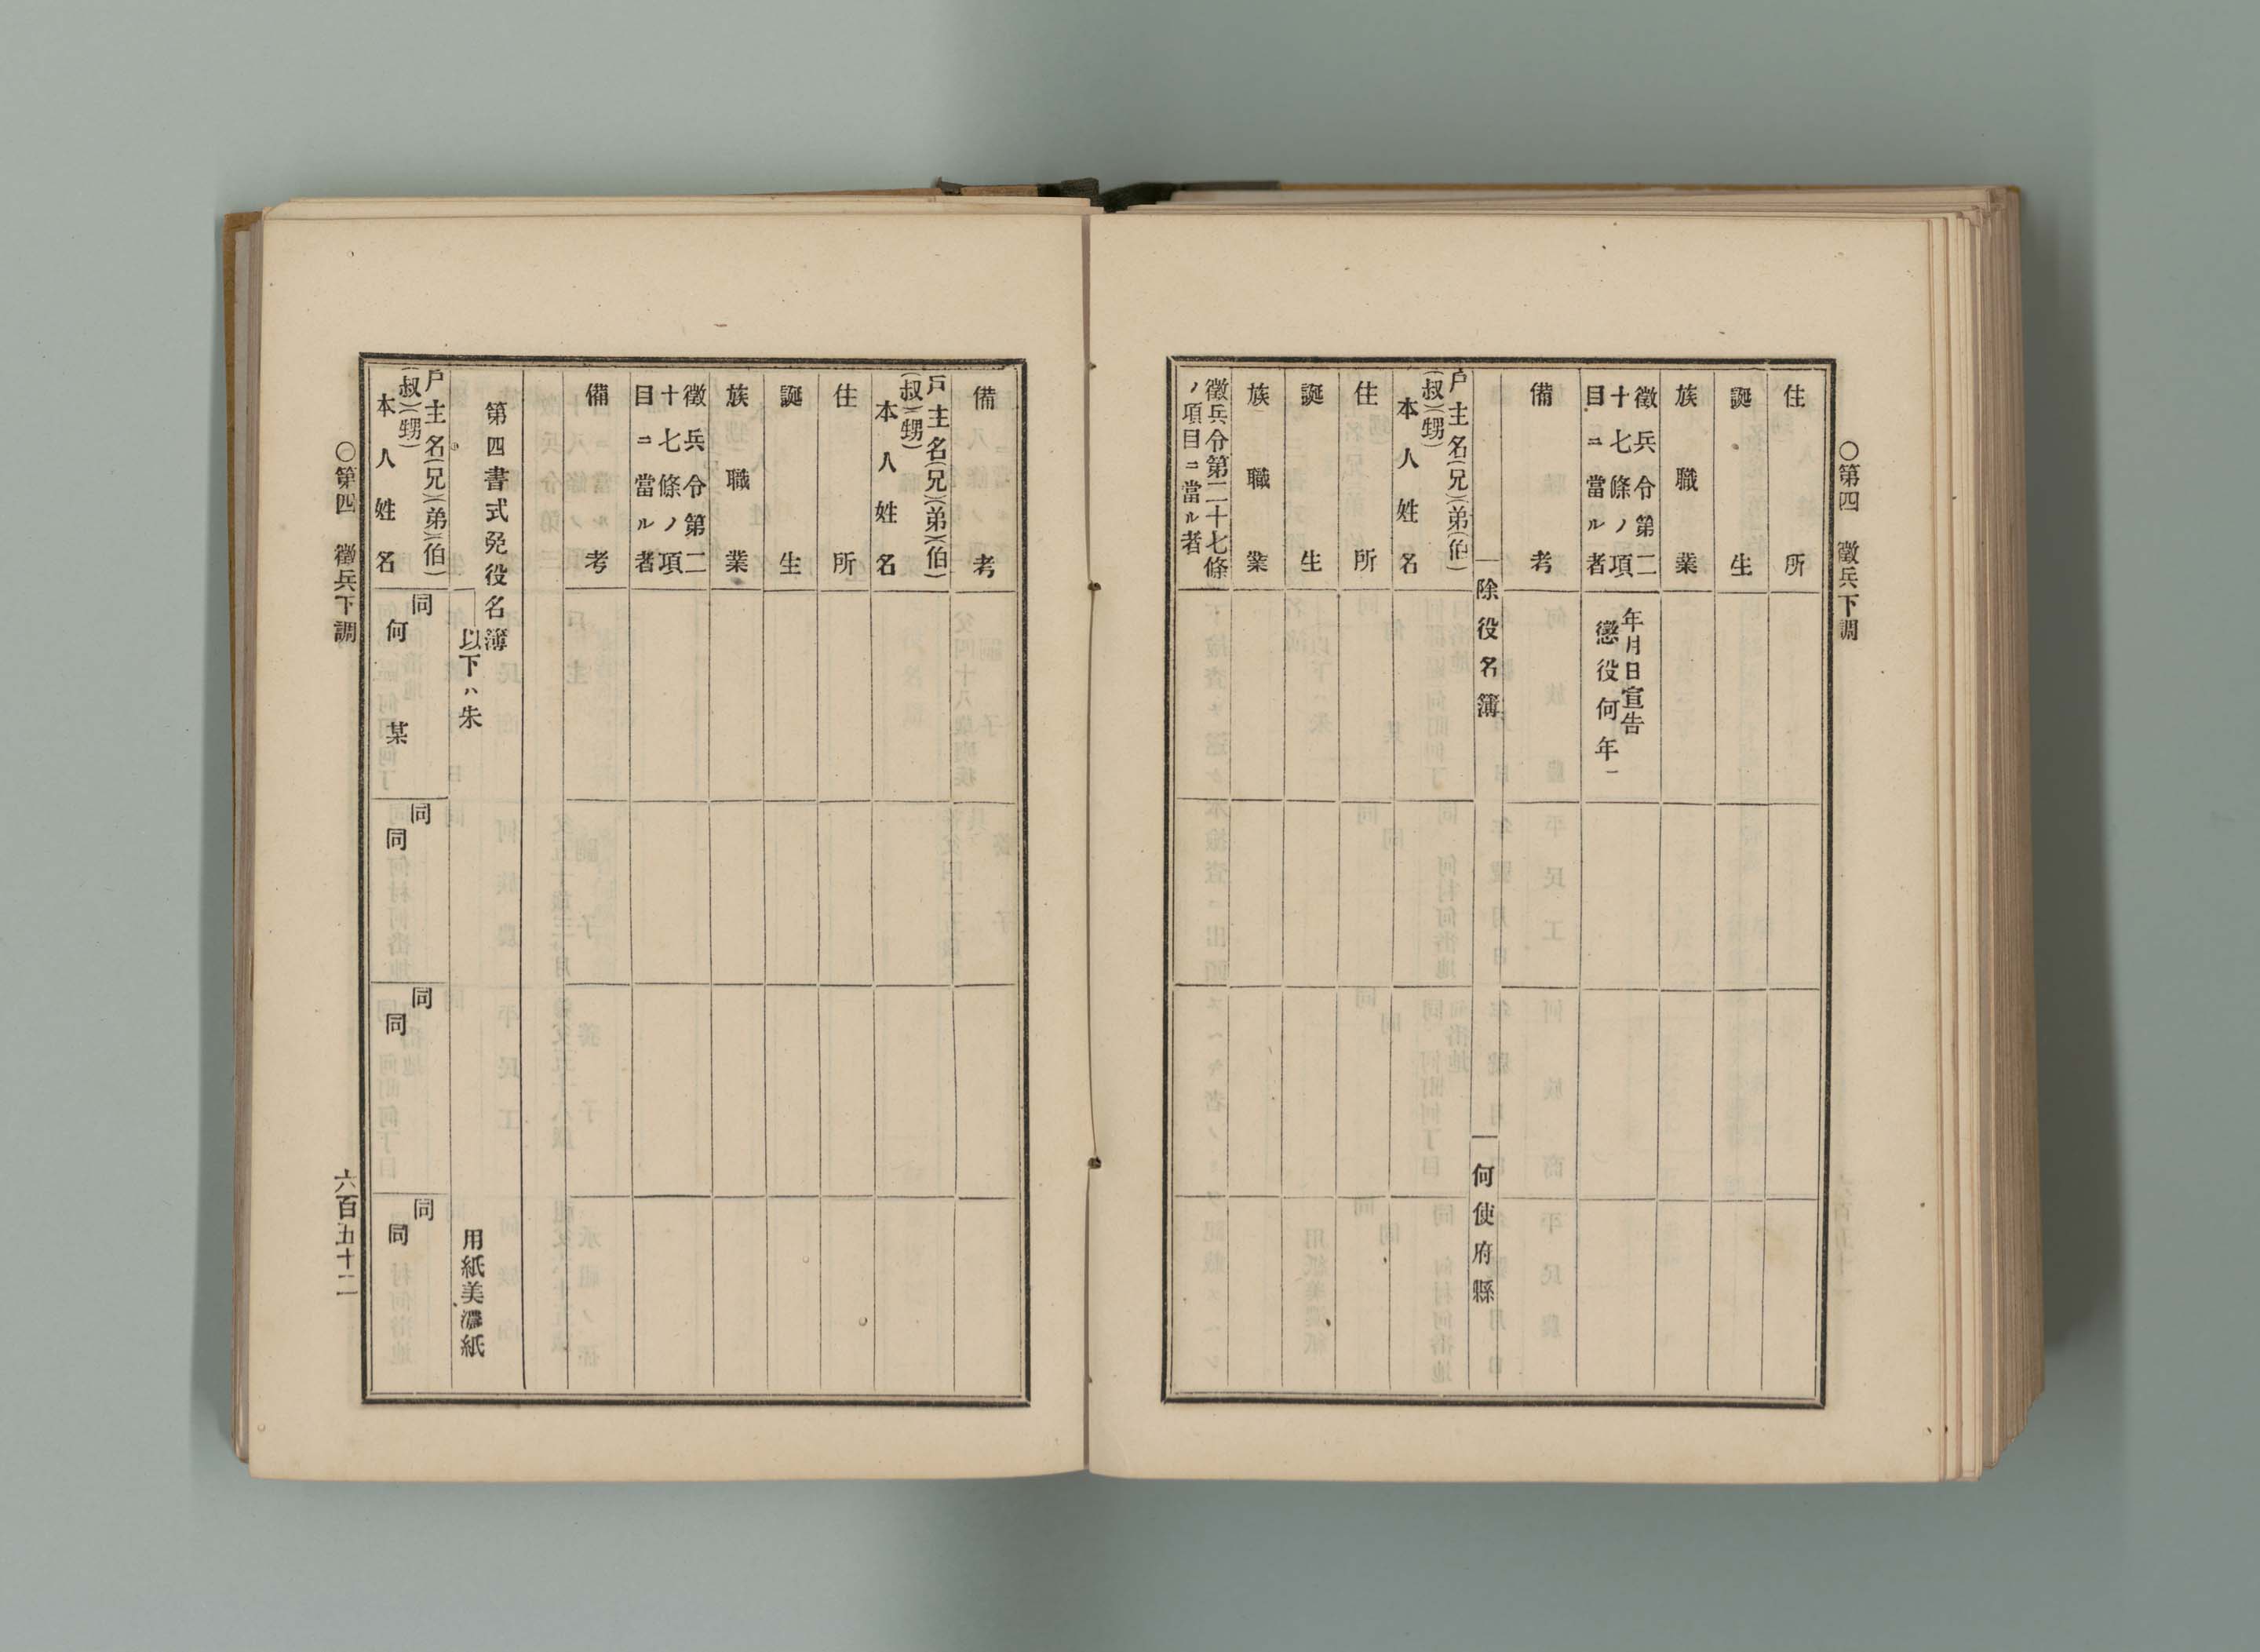 〇第四　徵兵下調
住所
誕生
族職業
徵兵令第二
十七條ノ項
目ニ當ル者
年月日宣告
懲役何年
備考
除役名簿
何使府縣
戶主名(兄)(弟)(伯)
(叔)(甥)
本人姓名
住所
誕生
族職業
徵兵令第二十七條
ノ項目ニ當ル者
備考
戶主名(兄)(弟)(伯)
(叔)(甥)
本人姓名
住所
誕生
族職業
徵兵令第二
十七條ノ項
目ニ當ル者
備考
第四書式免役名簿
以下ハ朱
用紙美濃紙
戶主名(兄)(弟)(伯)
(叔)(甥)
本人姓名
同
何某
同
同
同
同
同
同
〇第四　徵兵下調
六百五十二